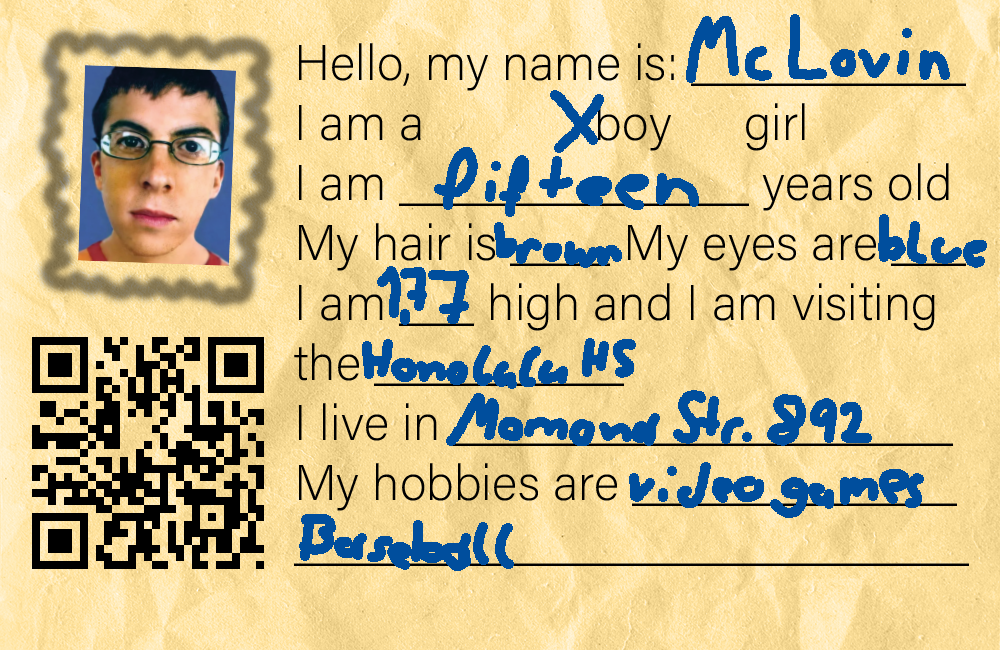 Hello, my name is: McLovin
I am a X boy girl
I am fifteen years old
My hair is brown My eyes are blue
I am 1,77 high and I am visiting
the Honolulu HS
I live in Momona Str. 892
My hobbies are video games
Baseball